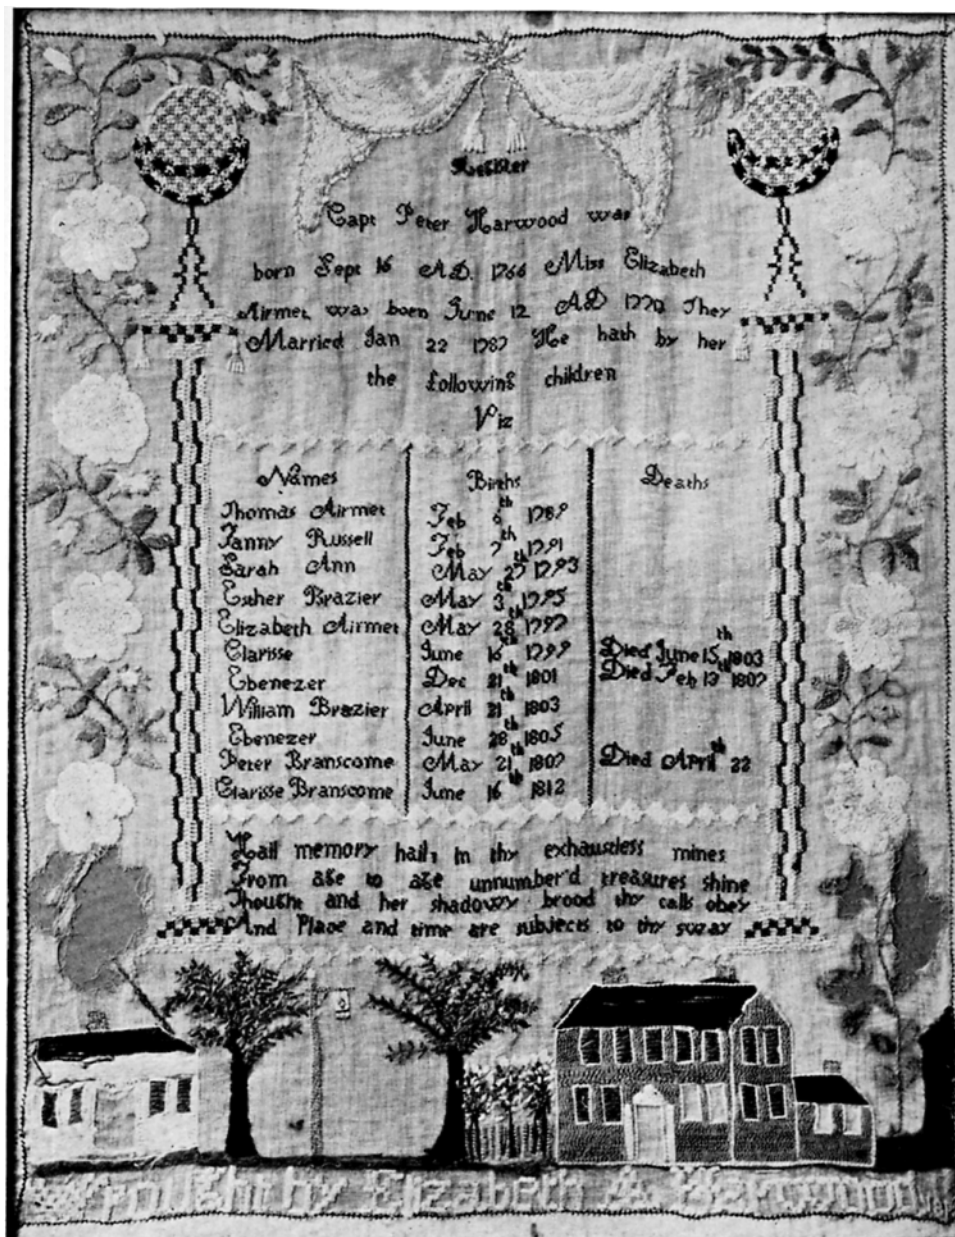 Register
Capt Peter Harwood was
born Sept 16 A.D. 1766 Miss Elizabeth
Airmet was born June 12 A.D 1770 They
Married Jan 22 1787 He hath by her
the following children
Viz
Names Births Deaths
Thomas Airmet Feb 6th 1789
Fanny Russell Feb 7th 1791
Sarah Ann May 27th 1793
Esther Brazier May 3th 1795
Elizabeth Airmet May 28th 1797
Clarisse June 16th 1799 Died June 15th 1803
Ebenezer Dec 21th 1801 Died Feb 13th 1807
William Brazier April 21th 1803
Ebenezer June 28th 1805
Peter Branscome May 21th 1807 Died April th 22
Clarisse Branscome June 16th 1812
Hail memory hail, In thy exhaustless mines
From age to age unnumber'd treasures shine
Thought and her shadowy brood thy calls obey
And Place and time are subjects to thy sway
Wrought by Elizabeth A. Harwood